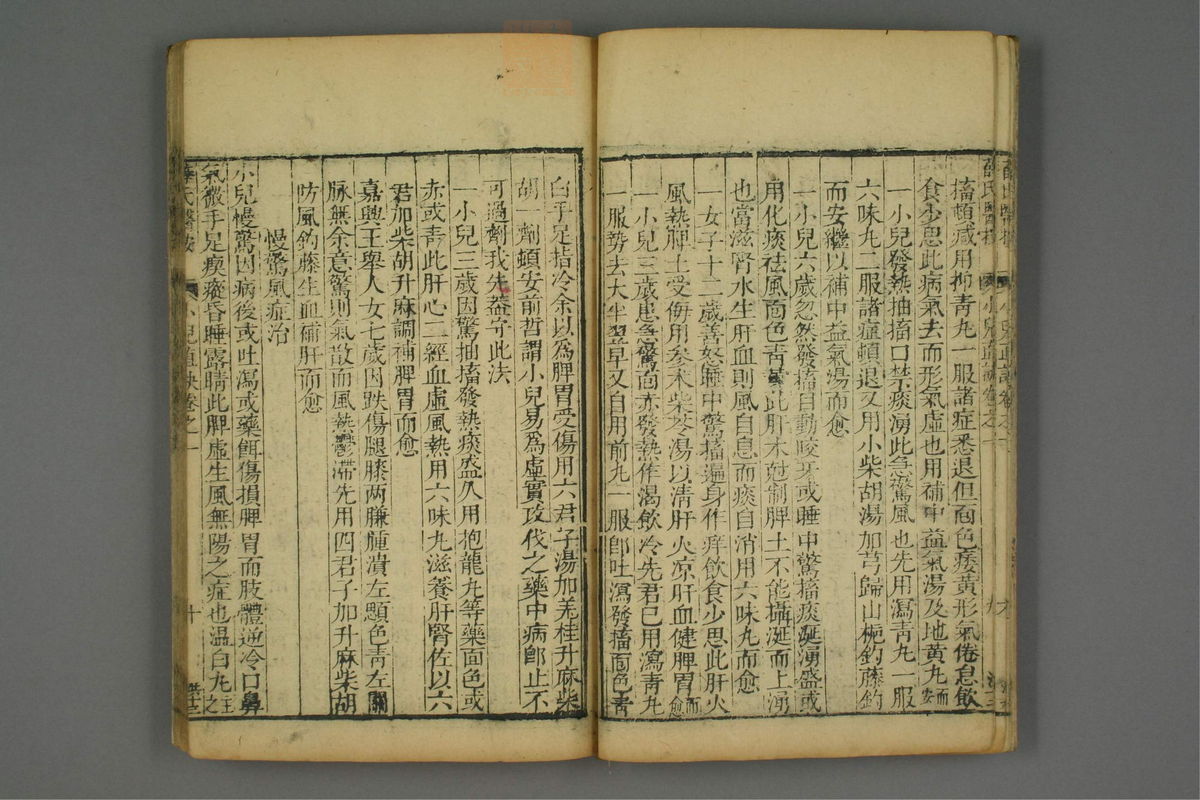 搐頓减用抑青丸一服諸症悉退但面色痿黃形氣倦怠飲
食少思此病氣去而形氣虛也用補中益氣湯及地黃丸而安
一小兒發熱抽搐口禁痰湧此急驚風也先用瀉青丸一服
六味丸二服諸症頓退又用小柴胡湯加芎歸山梔釣藤鈎
而安繼以補中益氣湯而愈
一小兒六歲忽然發搐目動咬牙或睡中驚搐痰涎湧盛或
用化痰祛風面色青此肝木尅制脾土不能攝涎而上湧
也當滋腎水生肝血則風自息而痰自消用六味丸而愈
一女子十二歲善怒睡中驚搐遍身作痒飲食少思此肝火
風熱脾土受侮用參术柴苓湯以清肝火凉肝血健脾胃而愈
一小兒三歲患急驚面赤發熱作渴飲冷先君巳用瀉青丸
一服勢去大半翌早又自用前丸一服卽吐瀉發搐面色青
白手足指冷余以爲脾胃受傷用六君子湯加羌桂升麻柴
胡一劑頓安前哲謂小兒易爲虛實攻伐之藥中病卽止不
可過劑我先益守此法
一小兒三歲因驚抽搐發熱痰盛久用抱龍丸等藥面色或
赤或青此肝心二經血虛風熱用六味丸滋養肝腎佐以六
君加柴胡升麻調補脾胃而愈
嘉興王舉人女七歲因跌傷腿膝两臁腫潰左顋色青左關
脉無余意驚則氣散而風熱鬱滯先用四君子加升麻柴胡
防風釣藤生血補肝而愈
慢驚風症治
小兒慢驚因病後或吐瀉或藥餌傷損脾胃而肢體逆冷口鼻
氣微手足瘈瘲昏睡露睛此脾虛生風無陽之症也温白丸主之
薛氏醫按 小兒直訣卷之一 十